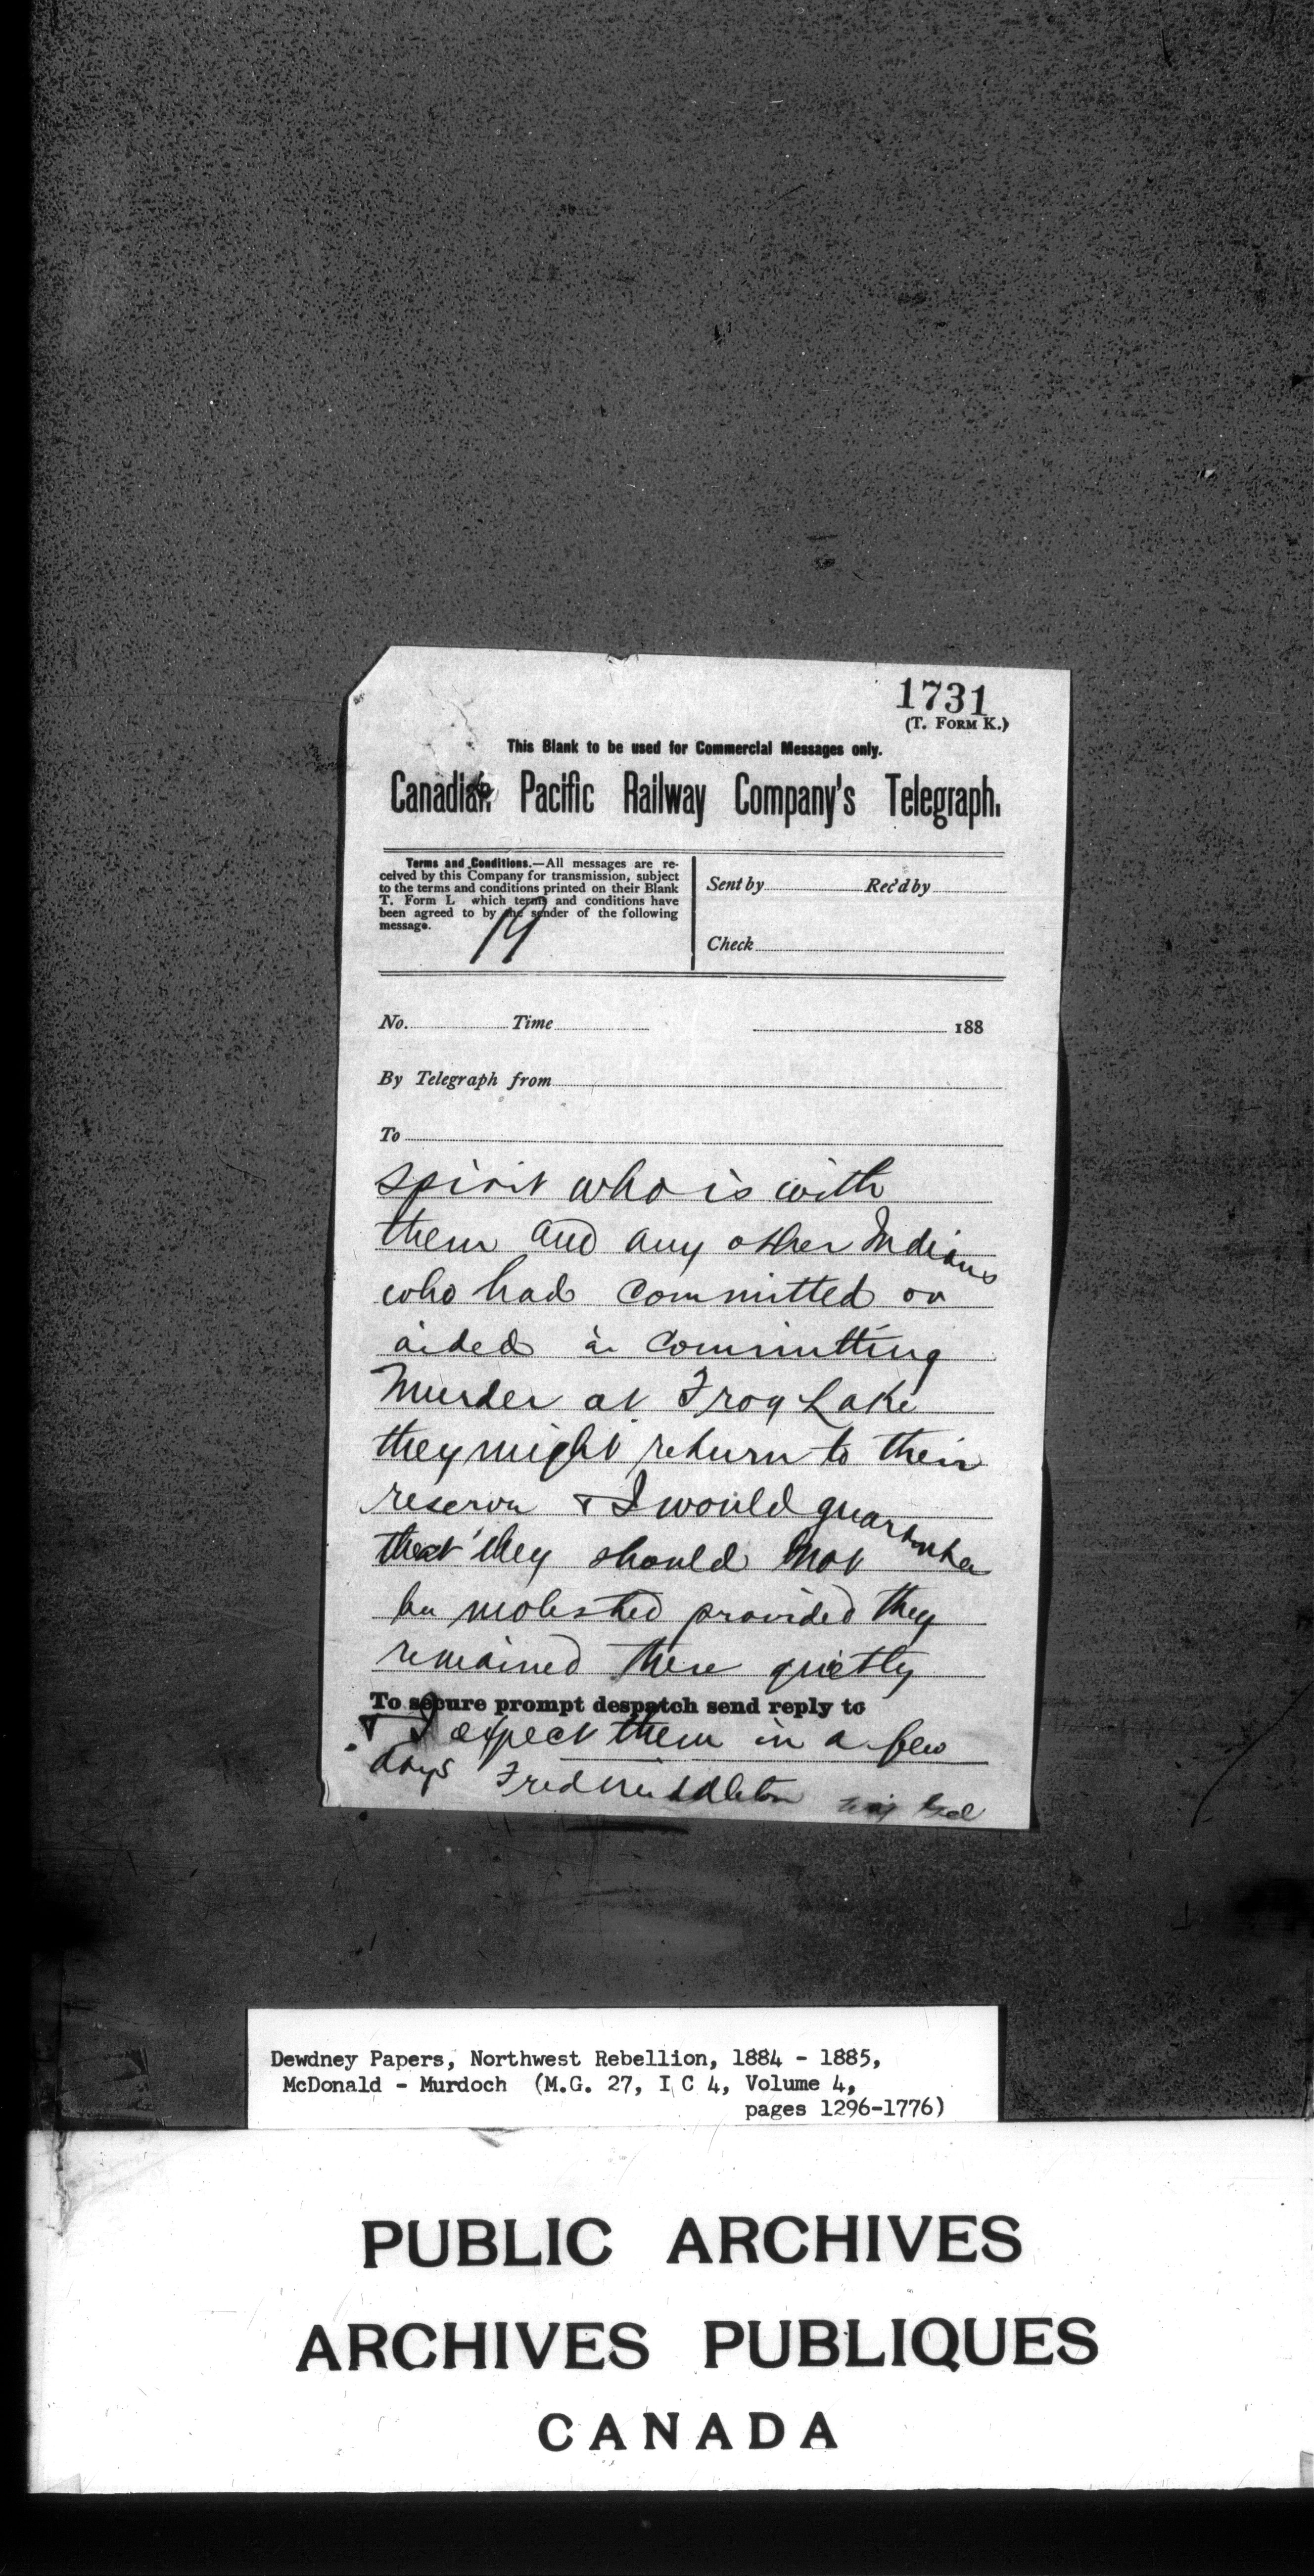 1731
(T. FORM K.)
This Blank to be used for Commercial Messages only.
Canadian Pacific Railway Company's Telegraph.
Terms and Conditions.—All messages are re-
ceived by this Company for transmission, subject
to the terms and conditions printed on their Blank
T. Form L which terms and conditions have
been agreed to by the sender of the following
message.
Sent by Rec'd by
Check
19
No. Time 188
By Telegraph from
To
spirit who is with
them and any other Indians
who had committed or
aided in committing
Murder at Frog Lake
they might return to their
reserve & I would guarantee
that they should not
be molested provided they
remained there quietly
To secure prompt despatch send reply to
& I expect them in a few
days Fred Middleton
Dewdney Papers, Northwest Rebellion, 1884 - 1885,
McDonald - Murdoch (M.G. 27, I C 4, Volume 4,
pages 1296-1776)
PUBLIC ARCHIVES
ARCHIVES PUBLIQUES
CANADA